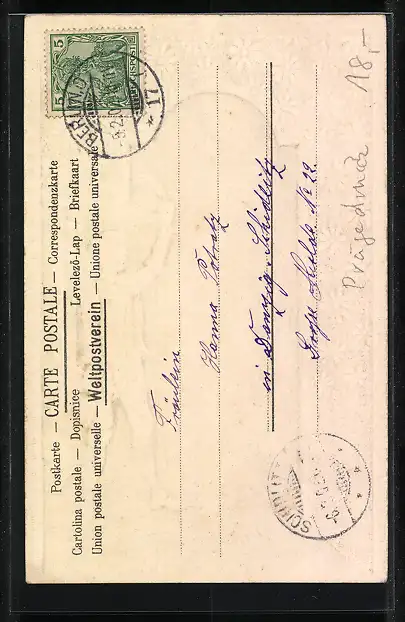 Postkarte – CARTE POSTALE – Correspondenzkarte
Cartolina postale – Dopisnice Levelező-Lap – Briefkaart
Union postale universelle – Weltpostverein – Unione postale universale
5 5
BERLIN
17
Fräulein
Hanna Potratz
in Danzig, Schidlitz
Große Mulde No 22.
SCHIDLITZ
Prägedruck
18,-